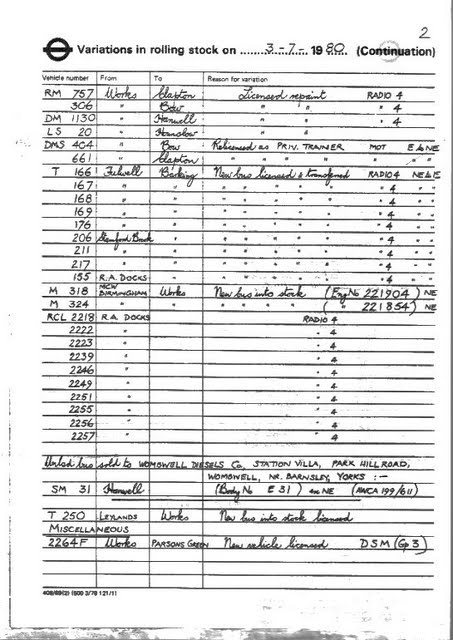 2
Variations in rolling stock on 3-7- 1980 (Continuation)
Vehicle number From To Reason for variation
RM 757 Works Clapton Licensed repaint RADIO 4
306 " Bow " " " 4
DM 1130 " Hanwell " " " 4
LS 20 " Hounslow " "
DMS 404 " Bow Relicensed as PRIV. TRAINER MOT E to NE
661 " Clapton " " " " " "
T 166 Fulwell Barking New bus licensed & transferred RADIO 4 NE to E
167 " " " " " " " 4 " "
168 " " " " " " " 4 " "
169 " " " " " " " 4 " "
176 " " " " " " " 4 " "
206 Stamford Brook " " " " " " 4 " "
211 " " " " " " " 4 " "
217 " " " " " " " 4 " "
155 R.A. DOCKS " " " " " " 4 " "
M 318 MCW BIRMINGHAM Works New bus into stock (Eng No 221904) NE
M 324 " " " " " ( " 221854) NE
RCL 2218 R.A. DOCKS RADIO 4
2222 " " 4
2223 " " 4
2239 " " 4
2246 " " 4
2249 " " 4
2251 " " 4
2255 " " 4
2256 " " 4
2257 " " 4
bus sold to WOMBWELL DIESELS Co, STATION VILLA, PARK HILL ROAD,
WOMBWELL, NR. BARNSLEY, YORKS :-
SM 31 Hanwell (Body No E 31) ex NE (AWCA 199/611)
T 250 LEYLANDS Works New bus into stock licensed
MISCELLANEOUS
2264F Works PARSONS GREEN New vehicle licensed DSM (Gp 3)
408/89(2) (500 3/79 121/1)